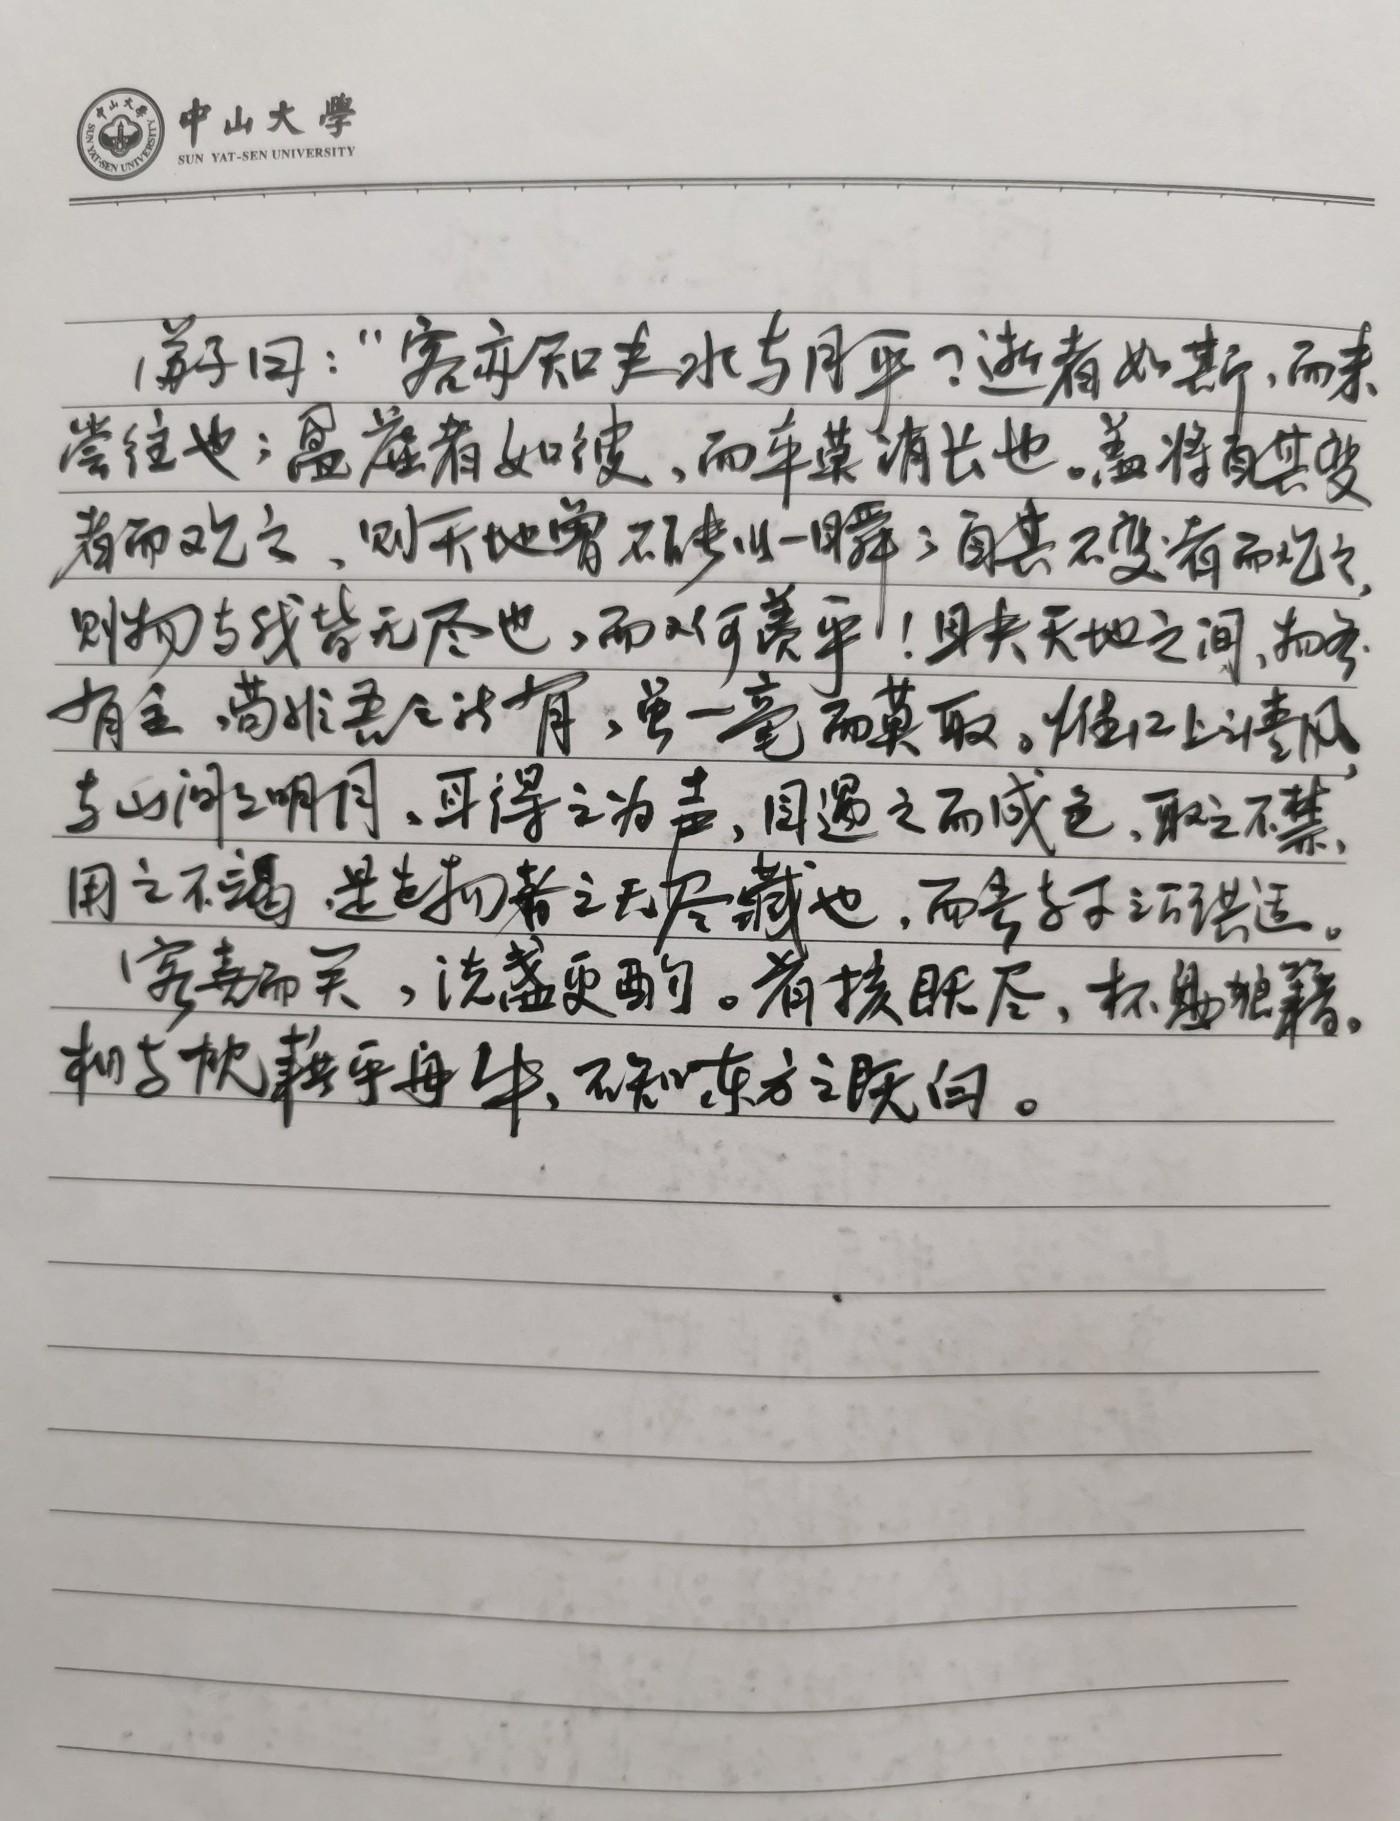 中山大學
SUN YAT-SEN UNIVERSITY
中山大學
SUN YAT-SEN UNIVERSITY
苏子曰：“客亦知夫水与月乎？逝者如斯，而未
尝往也；盈虚者如彼，而卒莫消长也。盖将自其变
者而观之，则天地曾不能以一瞬；自其不变者而观之，
则物与我皆无尽也，而又何羡乎！且夫天地之间，物各
有主，苟非吾之所有，虽一毫而莫取。惟江上之清风，
与山间之明月，耳得之为声，目遇之而成色，取之不禁，
用之不竭，是造物者之无尽藏也，而吾与子之所共适。
客喜而笑，洗盏更酌。肴核既尽，杯盘狼籍。
相与枕藉乎舟中，不知东方之既白。